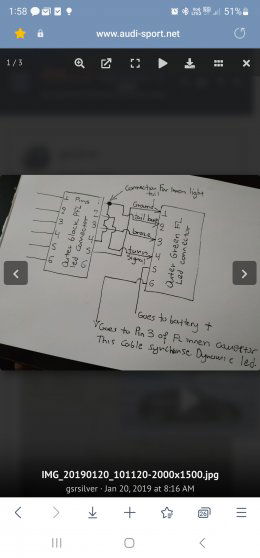 1:58
51%
www.audi-sport.net
1 / 3
Connection For Inner light
tail
Pins
Ground
tail
brake
turn
Signal
1
2
3
4
5
6
1
2
3
4
5
6
1
2
3
4
5
6
Outer black PFL
led Connector
Outer Green FL
Led connector
Goes to battery +
Goes to Pin 3 of FL inner connector
This Cable synchronise Dynamic led.
IMG_20190120_101120-2000x1500.jpg
gsrsilver · Jan 20, 2019 at 8:16 AM
26